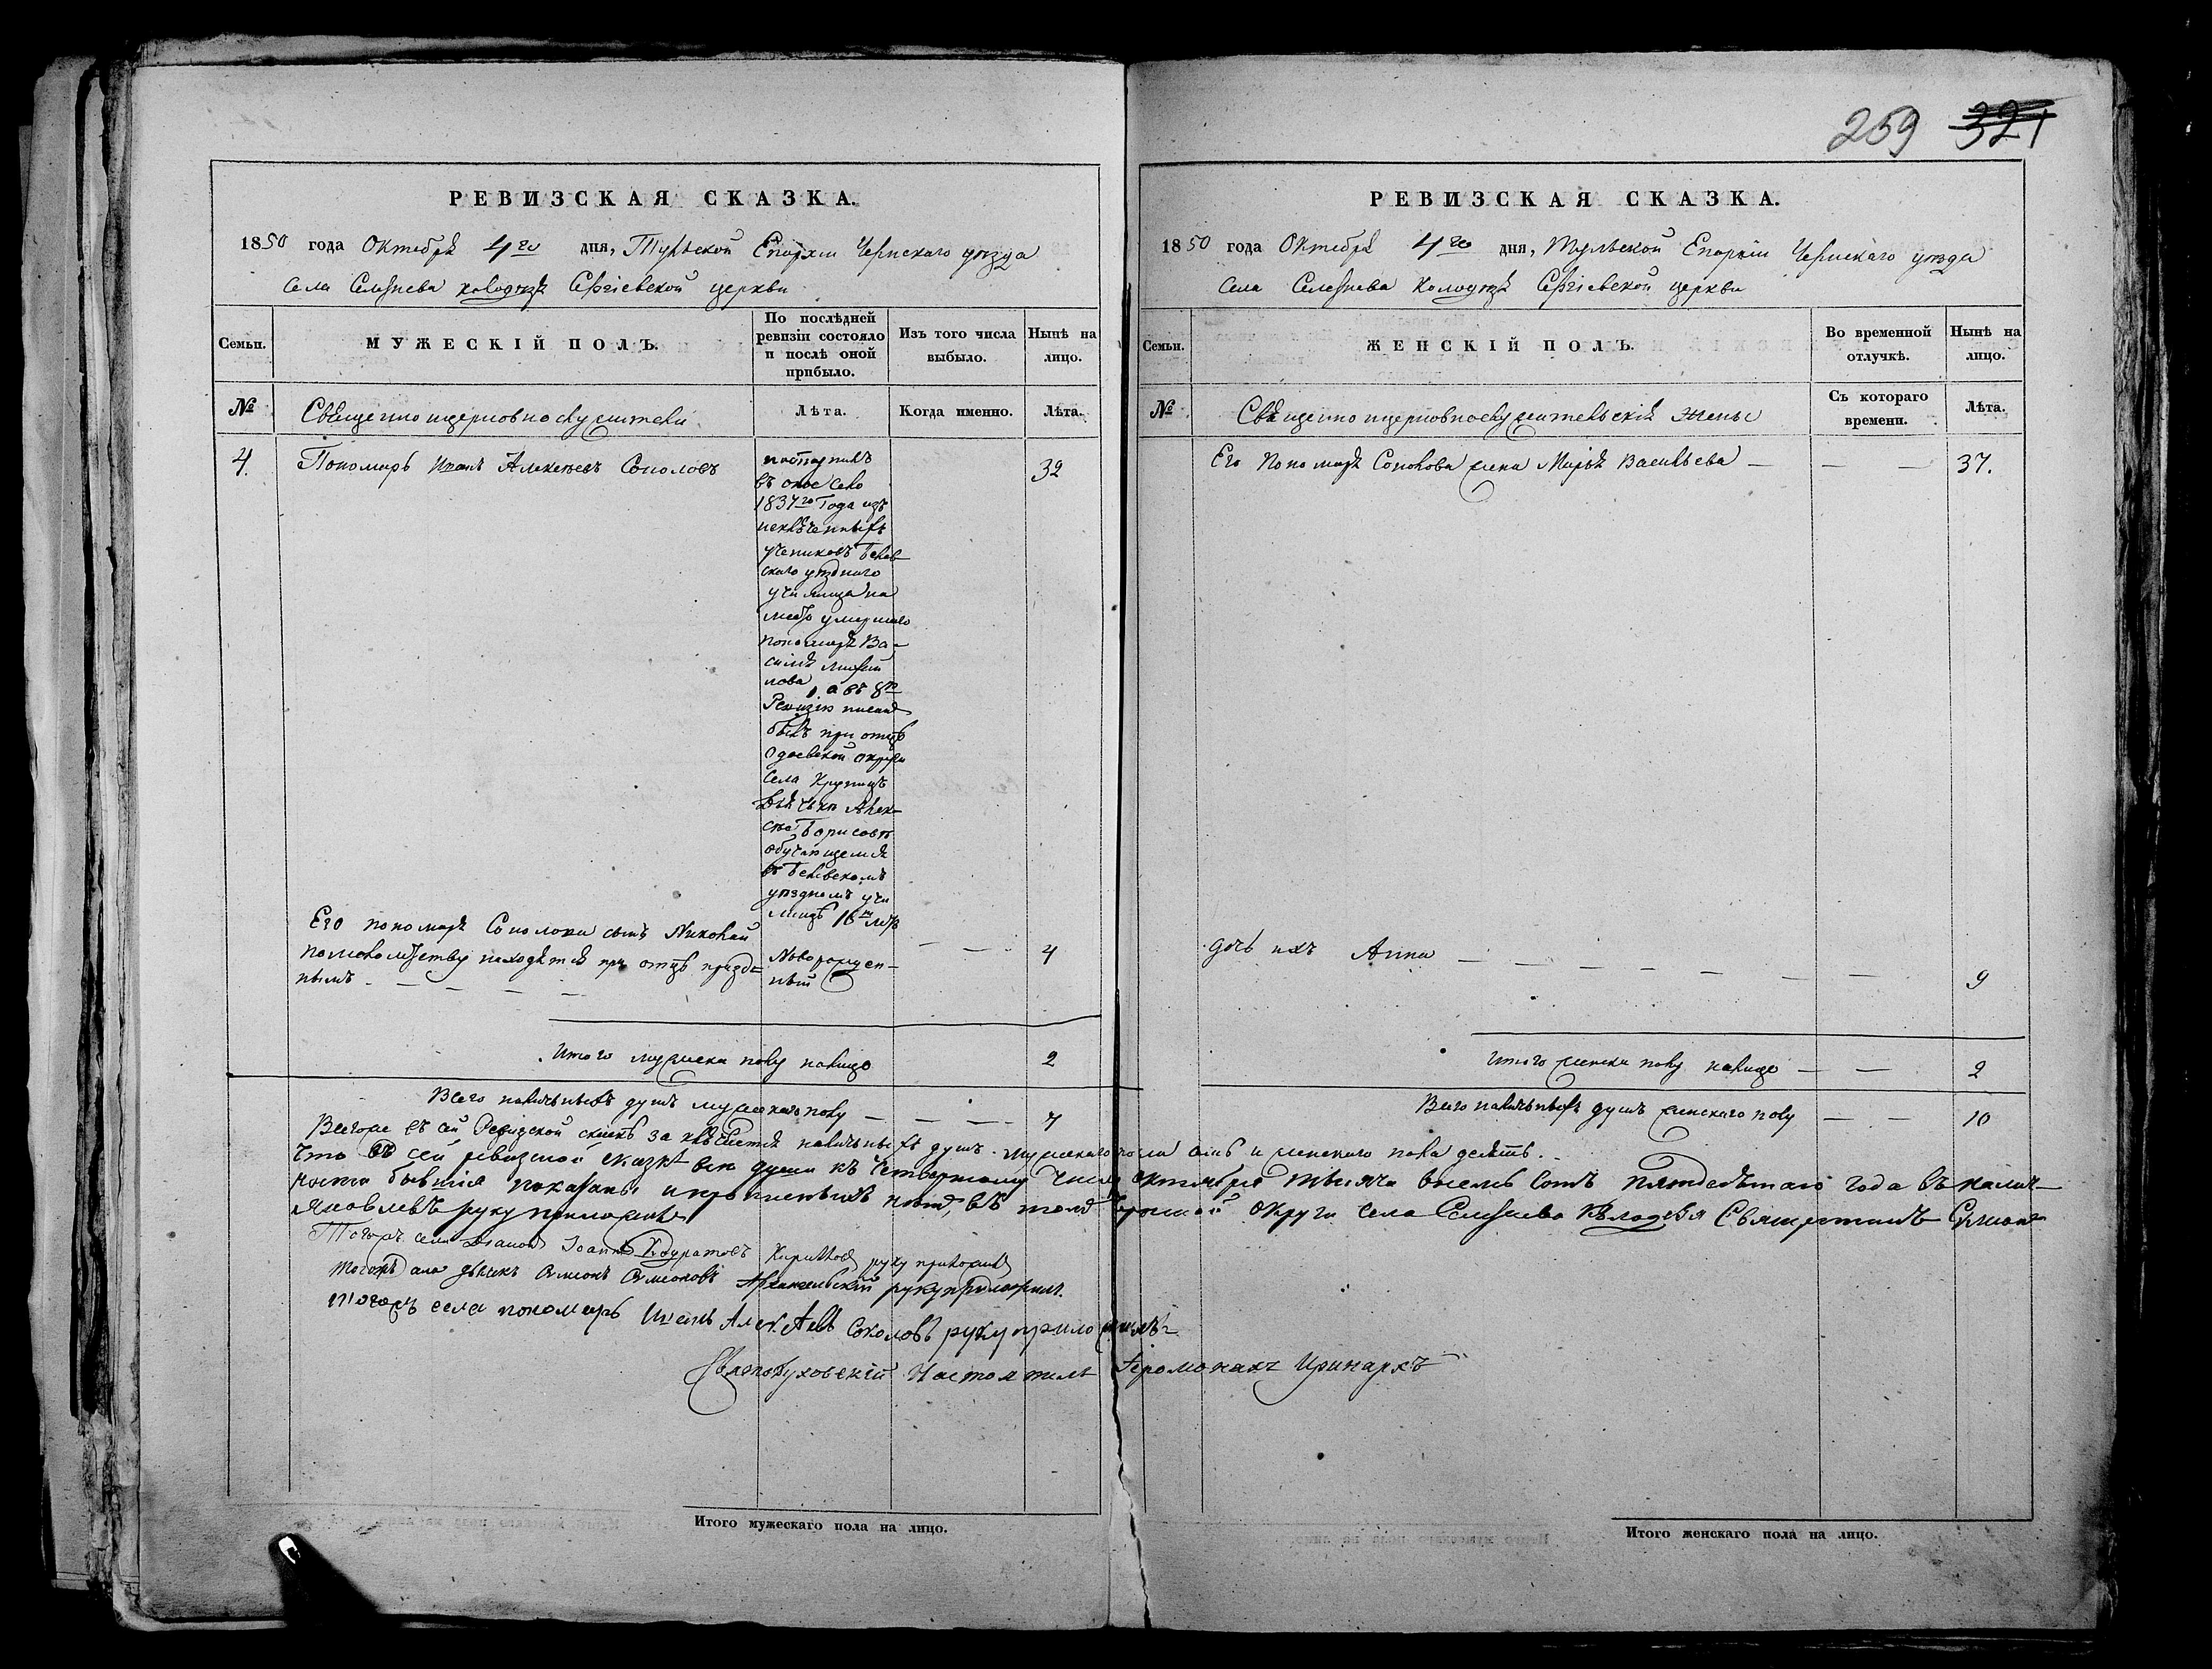 259 321
РЕВИЗСКАЯ СКАЗКА.
1850 года Октября 4го дня, Тульской Епархіи Чернскаго уѣзда
села Селезнева колодезя Сергіевской церкви
Семьи.
МУЖЕСКІЙ ПОЛЪ.
По послѣдней
ревизіи состояло
и послѣ оной
прибыло.
Изъ того числа
выбыло.
Нынѣ на
лицо.
№
Священно и церковнослужители
Лѣта.
Когда именно.
Лѣта.
4.
Пономарь Иванъ Алексѣевъ Соколовъ
32
поступилъ
въ оное село
1837го Года изъ
учениковъ Белев
скаго уѣзднаго
училища на
мѣсто умершаго
пономаря Ва-
силія Михай
лова, а въ 8ю
Ревизію писанъ
былъ при отцѣ
Одоевской округи
села
дьячкѣ Алек-
сѣе Борисовѣ
обучающемся
въ Белевскомъ
уѣздномъ учи
лищѣ 16ти лѣтъ
Его пономаря Соколова сынъ Николай
по малолѣтству находится при отцѣ празд-
нымъ
Новорожден-
ный
4
Итого мужеска полу налицо
2
Всего наличныхъ душъ мужескаго полу
7
РЕВИЗСКАЯ СКАЗКА.
1850 года Октября 4го дня, Тульской Епархіи Чернскаго уѣзда
села Селезнева Колодезя Сергіевской церкви
Семьи.
ЖЕНСКІЙ ПОЛЪ.
Во временной
отлучкѣ.
Нынѣ на
лицо.
№
Священно и церковнослужительскія жены
Съ котораго
времени.
Лѣта.
Его Пономаря Соколова жена Марья Васильева
37.
дочь ихъ Анна
9
Итого женска полу налицо
2
Всего наличныхъ душъ женскаго полу
10
Всегоже въ сей Ревизской сказкѣ заключается наличныхъ душъ мужескаго пола семь и женскаго пола десять.
Что въ сей ревизской сказкѣ все души къ четвертому числу октября тысяча восемь сотъ пятдесѣтаго года въ налич-
ности бывшія показаны и прописныхъ нѣтъ, въ томъ Чернской округи села Селезнева Колодезя Священникъ Симеонъ
Яковлевъ руку приложилъ
Тогожъ села Діаконъ Іоаннъ Кириллов руку приложилъ
Тогожъ села дьячекъ Симеонъ Симеоновъ Архангельскій руку приложилъ.
Тогожъ села пономарь Иванъ Алексѣевъ Соколовъ руку приложилъ
Святодуховскій Настоятель Іеромонахъ Иринархъ
Итого мужескаго пола на лицо.
Итого женскаго пола на лицо.